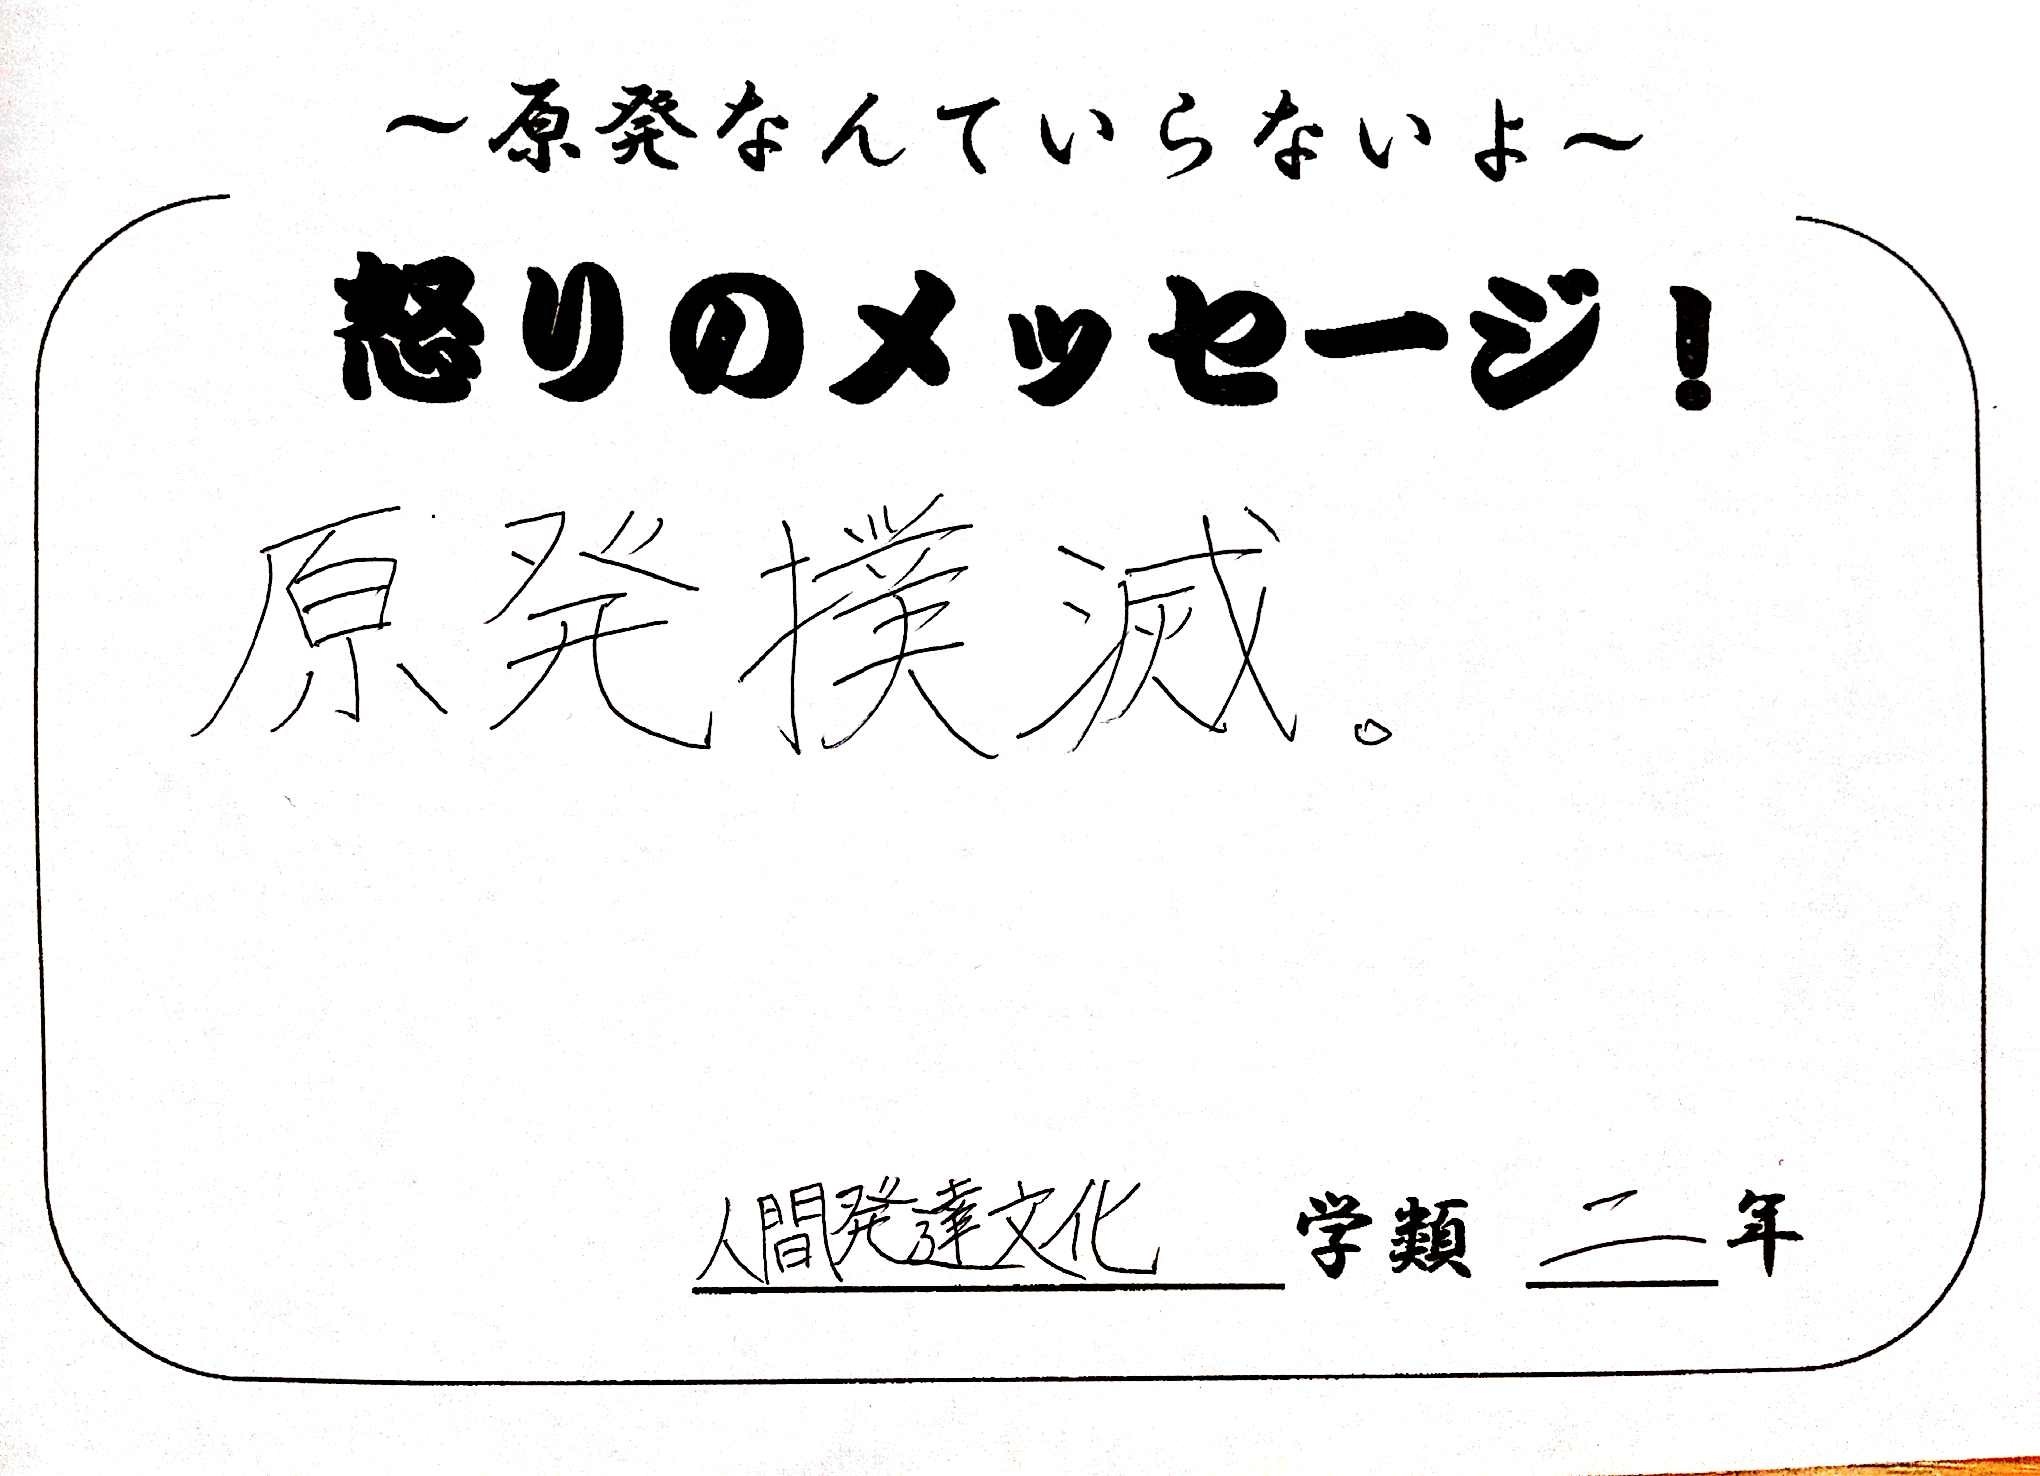 ～原発なんていらないよ～
怒りのメッセージ！
原発撲滅。
人間発達文化 学類 二 年